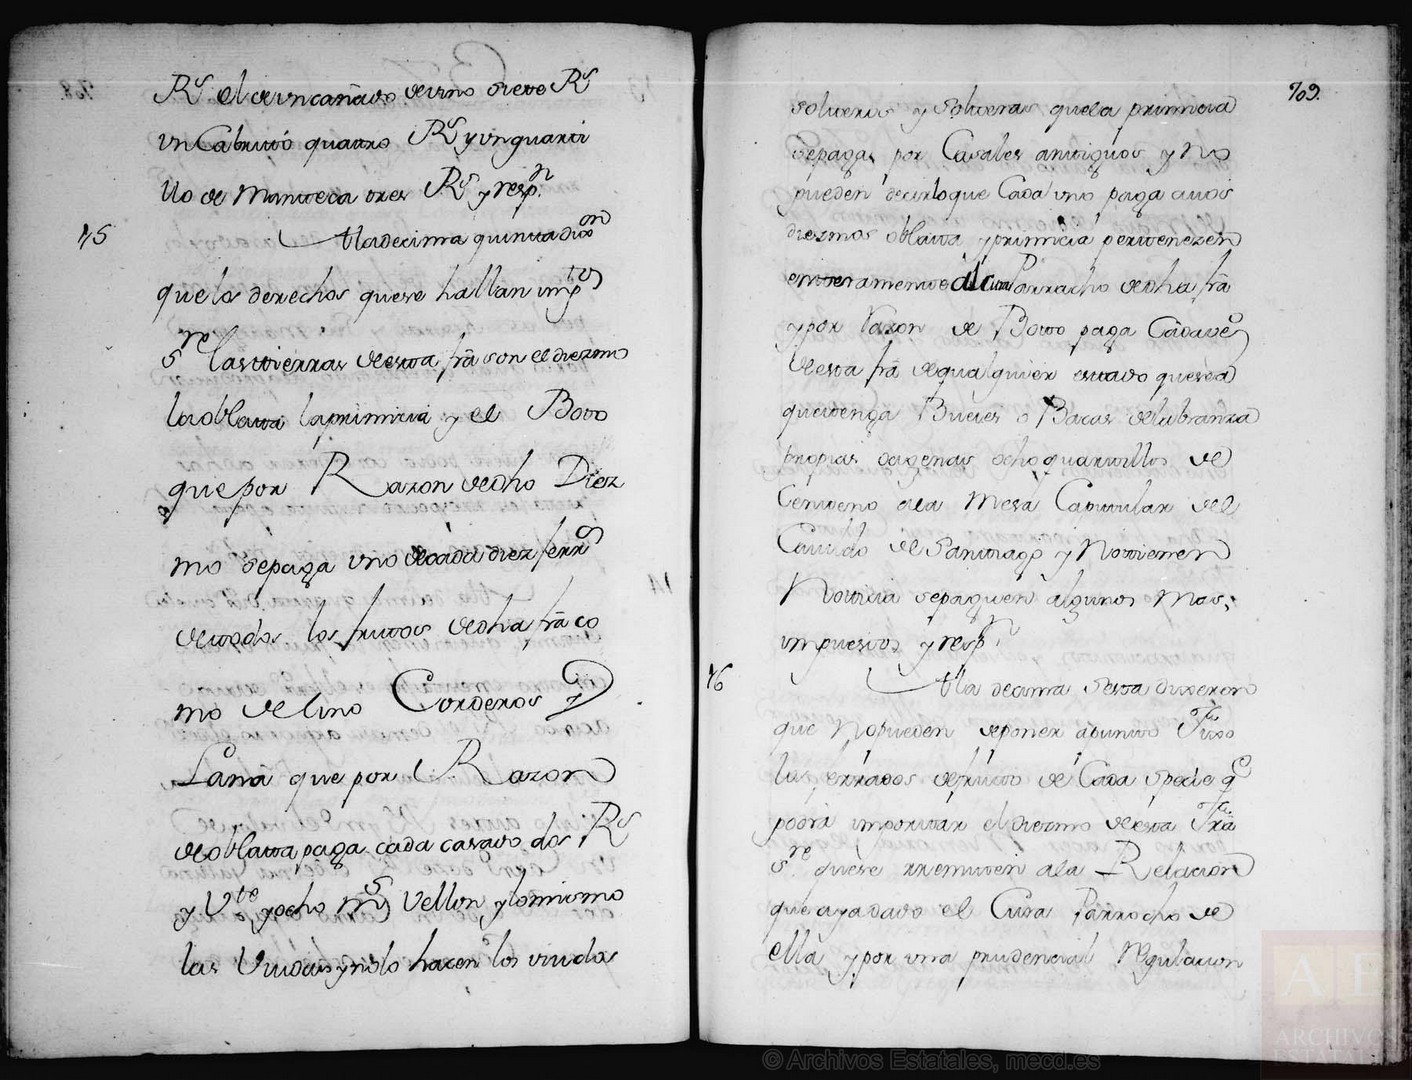 Rs el de un cañado de vino siete Rs
un Cabrito quatro Rs y un quarti
llo de Manteca tres Rs y resp.n
15
A la decima quinta dix.on
que los derechos que se hallan imp.tos
s.re las tierras de esta fra son el diezmo
la oblatta la primicia y el Boto
que por Razon de dho Diez
mo se paga uno de cada diez ferr.s
de todos los frutos de dha fra co
mo de lino Corderos y
Lana que por Razon
de oblatta paga cada casado dos Rs
y V.te y ocho ms Vellon y lo mismo
las Viudas y no lo hacen los viudos
709.
solteros y solteras que la primicia
se paga por Casales antiguos y no
pueden decir lo que Cada uno paga cuios
diezmos oblatta y primicia pertenezen
enteramente al cura Parrocho de dha fra
y por Razon de Boto paga Cada vº
de esta fra de qualquier estado que sea
que tenga Bueies o Bacas de labranza
propias o agenas ocho quartillos de
Centeno a la Mesa Capitular del
Cavildo de Santiagº y No tienen
Noticia se paguen algunos mas
impuestos y resp.n
16
A la decima sesta dixeron
que No pueden deponer a punto Fixo
los ferrados de fruto de Cada Specie qe
podrá importar el diezmo de esta Fra
s.re que se rremiten a la Relacion
que a dado el Cura Parrocho de
ella y por una prudencial Regulacion
© Archivos Estatales, mecd.es
AE
ARCHIVOS
ESTATALES